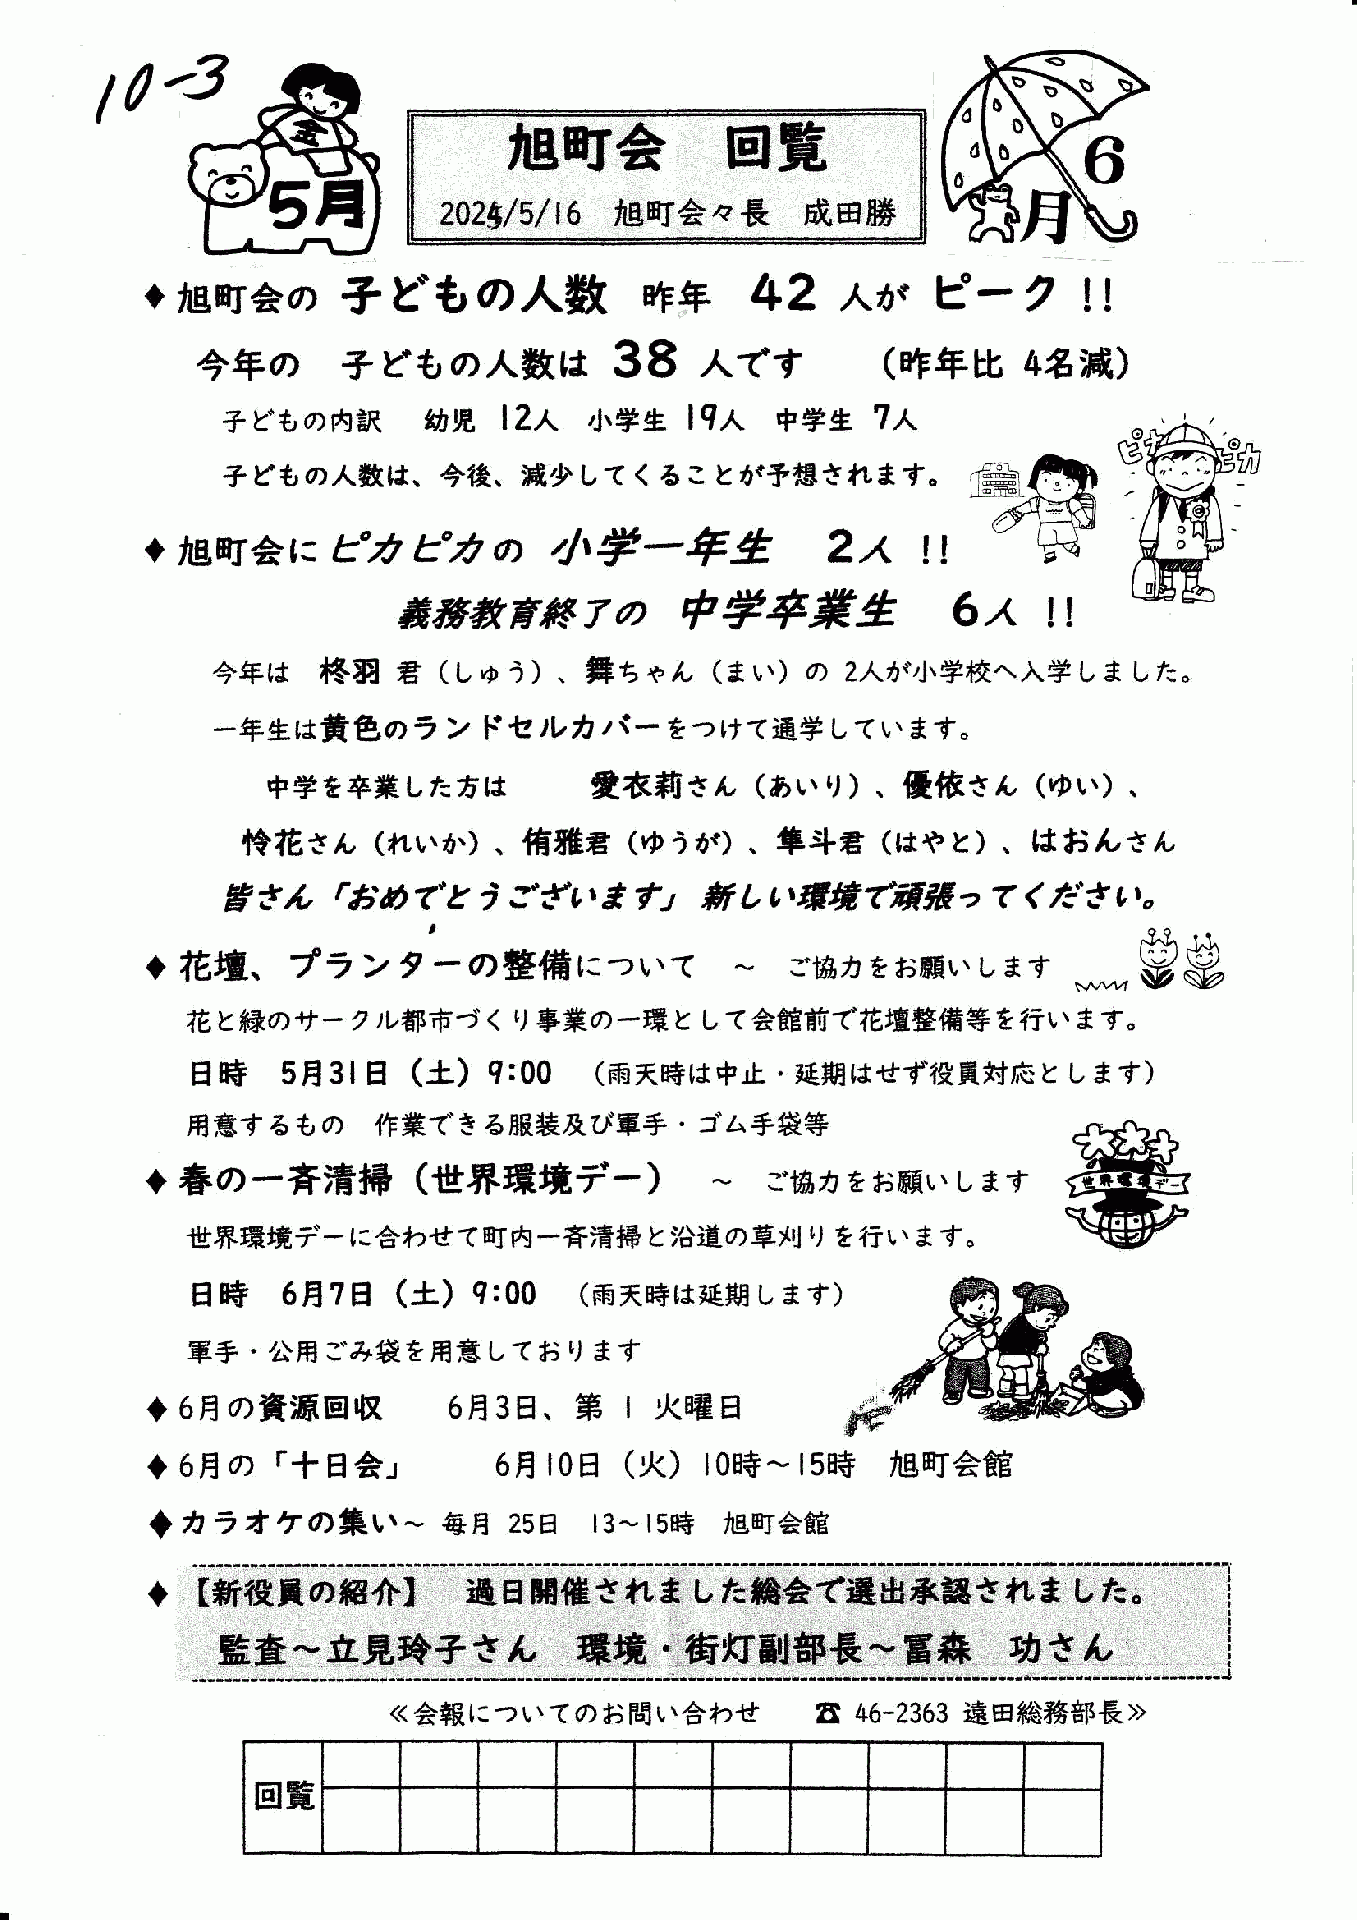 10-3
金
5月
旭町会　回覧
2025/5/16　旭町会々長　成田勝
6
月
◆旭町会の 子どもの人数　昨年　42 人が ピーク !!
今年の　子どもの人数は 38 人です　（昨年比 4名減）
子どもの内訳　幼児 12人　小学生 19人　中学生 7人
子どもの人数は、今後、減少してくることが予想されます。
ピカ ピカ
◆旭町会に ピカピカの 小学一年生　2人 !!
義務教育終了の 中学卒業生　6人 !!
今年は　柊羽 君（しゅう）、舞ちゃん（まい）の 2人が小学校へ入学しました。
一年生は黄色のランドセルカバーをつけて通学しています。
中学を卒業した方は　愛衣莉さん（あいり）、優依さん（ゆい）、
怜花さん（れいか）、侑雅君（ゆうが）、隼斗君（はやと）、はおんさん
皆さん「おめでとうございます」新しい環境で頑張ってください。
◆花壇、プランターの整備について　～　ご協力をお願いします
花と緑のサークル都市づくり事業の一環として会館前で花壇整備等を行います。
日時　5月31日（土）9:00　（雨天時は中止・延期はせず役員対応とします）
用意するもの　作業できる服装及び軍手・ゴム手袋等
◆春の一斉清掃（世界環境デー）　～　ご協力をお願いします
世界環境デー
世界環境デーに合わせて町内一斉清掃と沿道の草刈りを行います。
日時　6月7日（土）9:00　（雨天時は延期します）
軍手・公用ごみ袋を用意しております
◆6月の資源回収　6月3日、第 1 火曜日
◆6月の「十日会」　6月10日（火）10時～15時　旭町会館
◆カラオケの集い～ 毎月 25日　13～15時　旭町会館
◆【新役員の紹介】　過日開催されました総会で選出承認されました。
監査～立見玲子さん　環境・街灯副部長～冨森　功さん
≪会報についてのお問い合わせ　☎ 46-2363 遠田総務部長≫
回覧